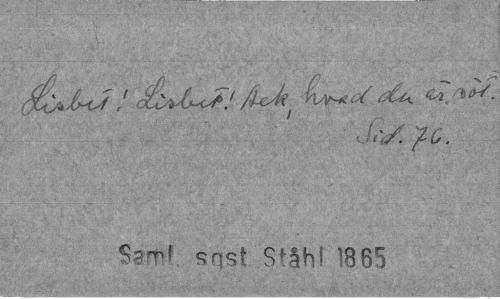 Lisbet! Lisbet! Ack, hvad du är söt.
Sid. 76.
Saml. sqst Ståhl 1865